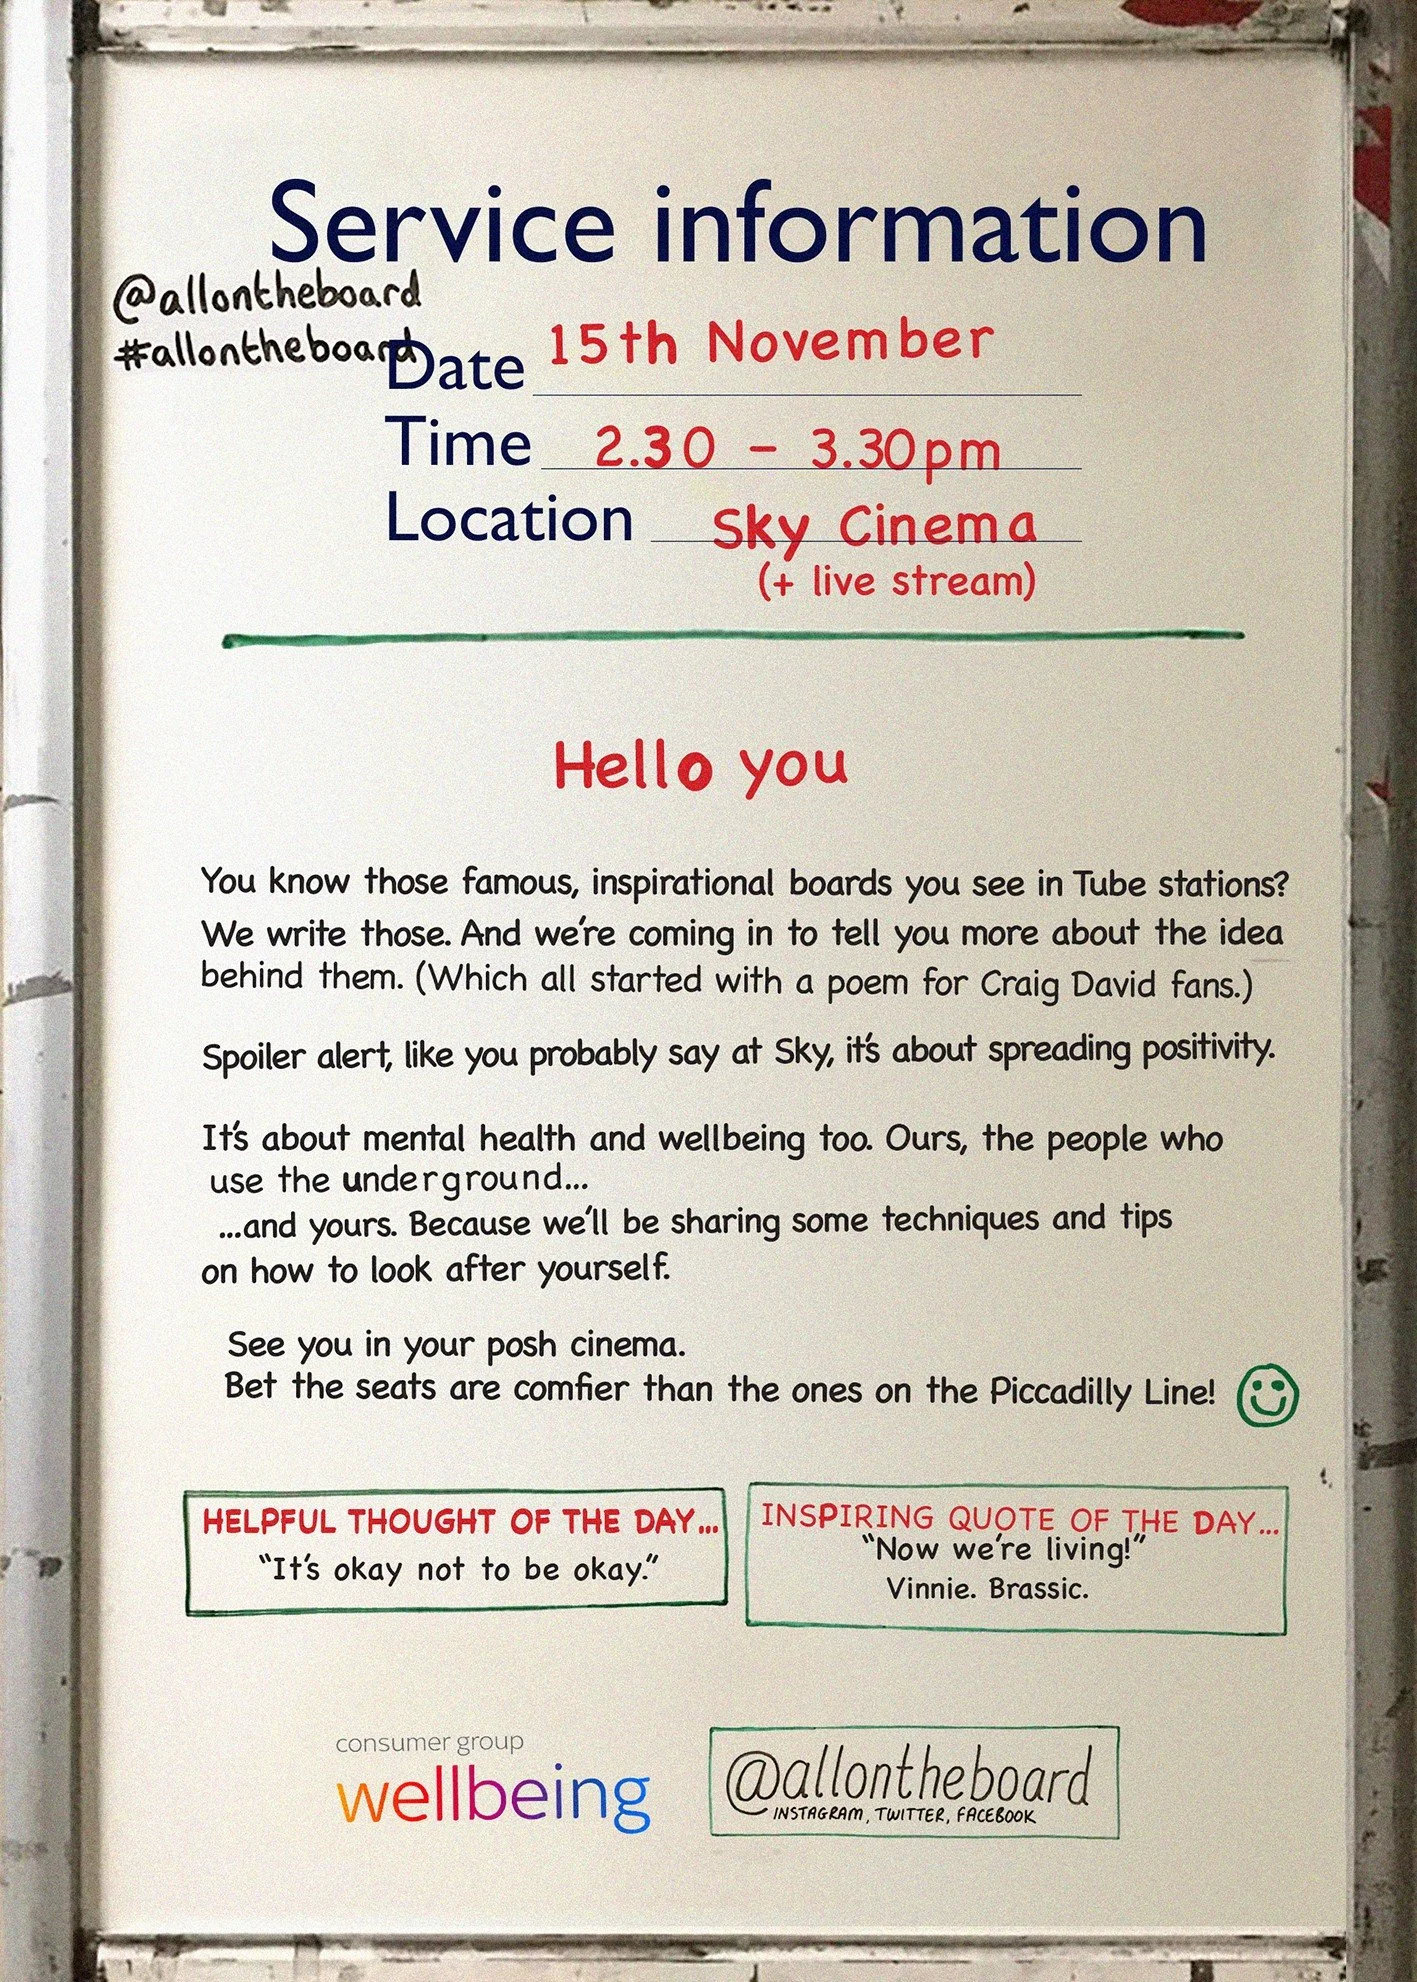 Service information
@allontheboard
#allontheboard
Date 15th November
Time 2.30 - 3.30pm
Location Sky Cinema
(+ live stream)
Hello you
You know those famous, inspirational boards you see in Tube stations?
We write those. And we're coming in to tell you more about the idea
behind them. (Which all started with a poem for Craig David fans.)
Spoiler alert, like you probably say at Sky, it's about spreading positivity.
It's about mental health and wellbeing too. Ours, the people who
use the underground...
...and yours. Because we'll be sharing some techniques and tips
on how to look after yourself.
See you in your posh cinema.
Bet the seats are comfier than the ones on the Piccadilly Line!
HELPFUL THOUGHT OF THE DAY...
"It's okay not to be okay."
INSPIRING QUOTE OF THE DAY...
"Now we're living!"
Vinnie. Brassic.
consumer group
wellbeing
@allontheboard
INSTAGRAM, TWITTER, FACEBOOK